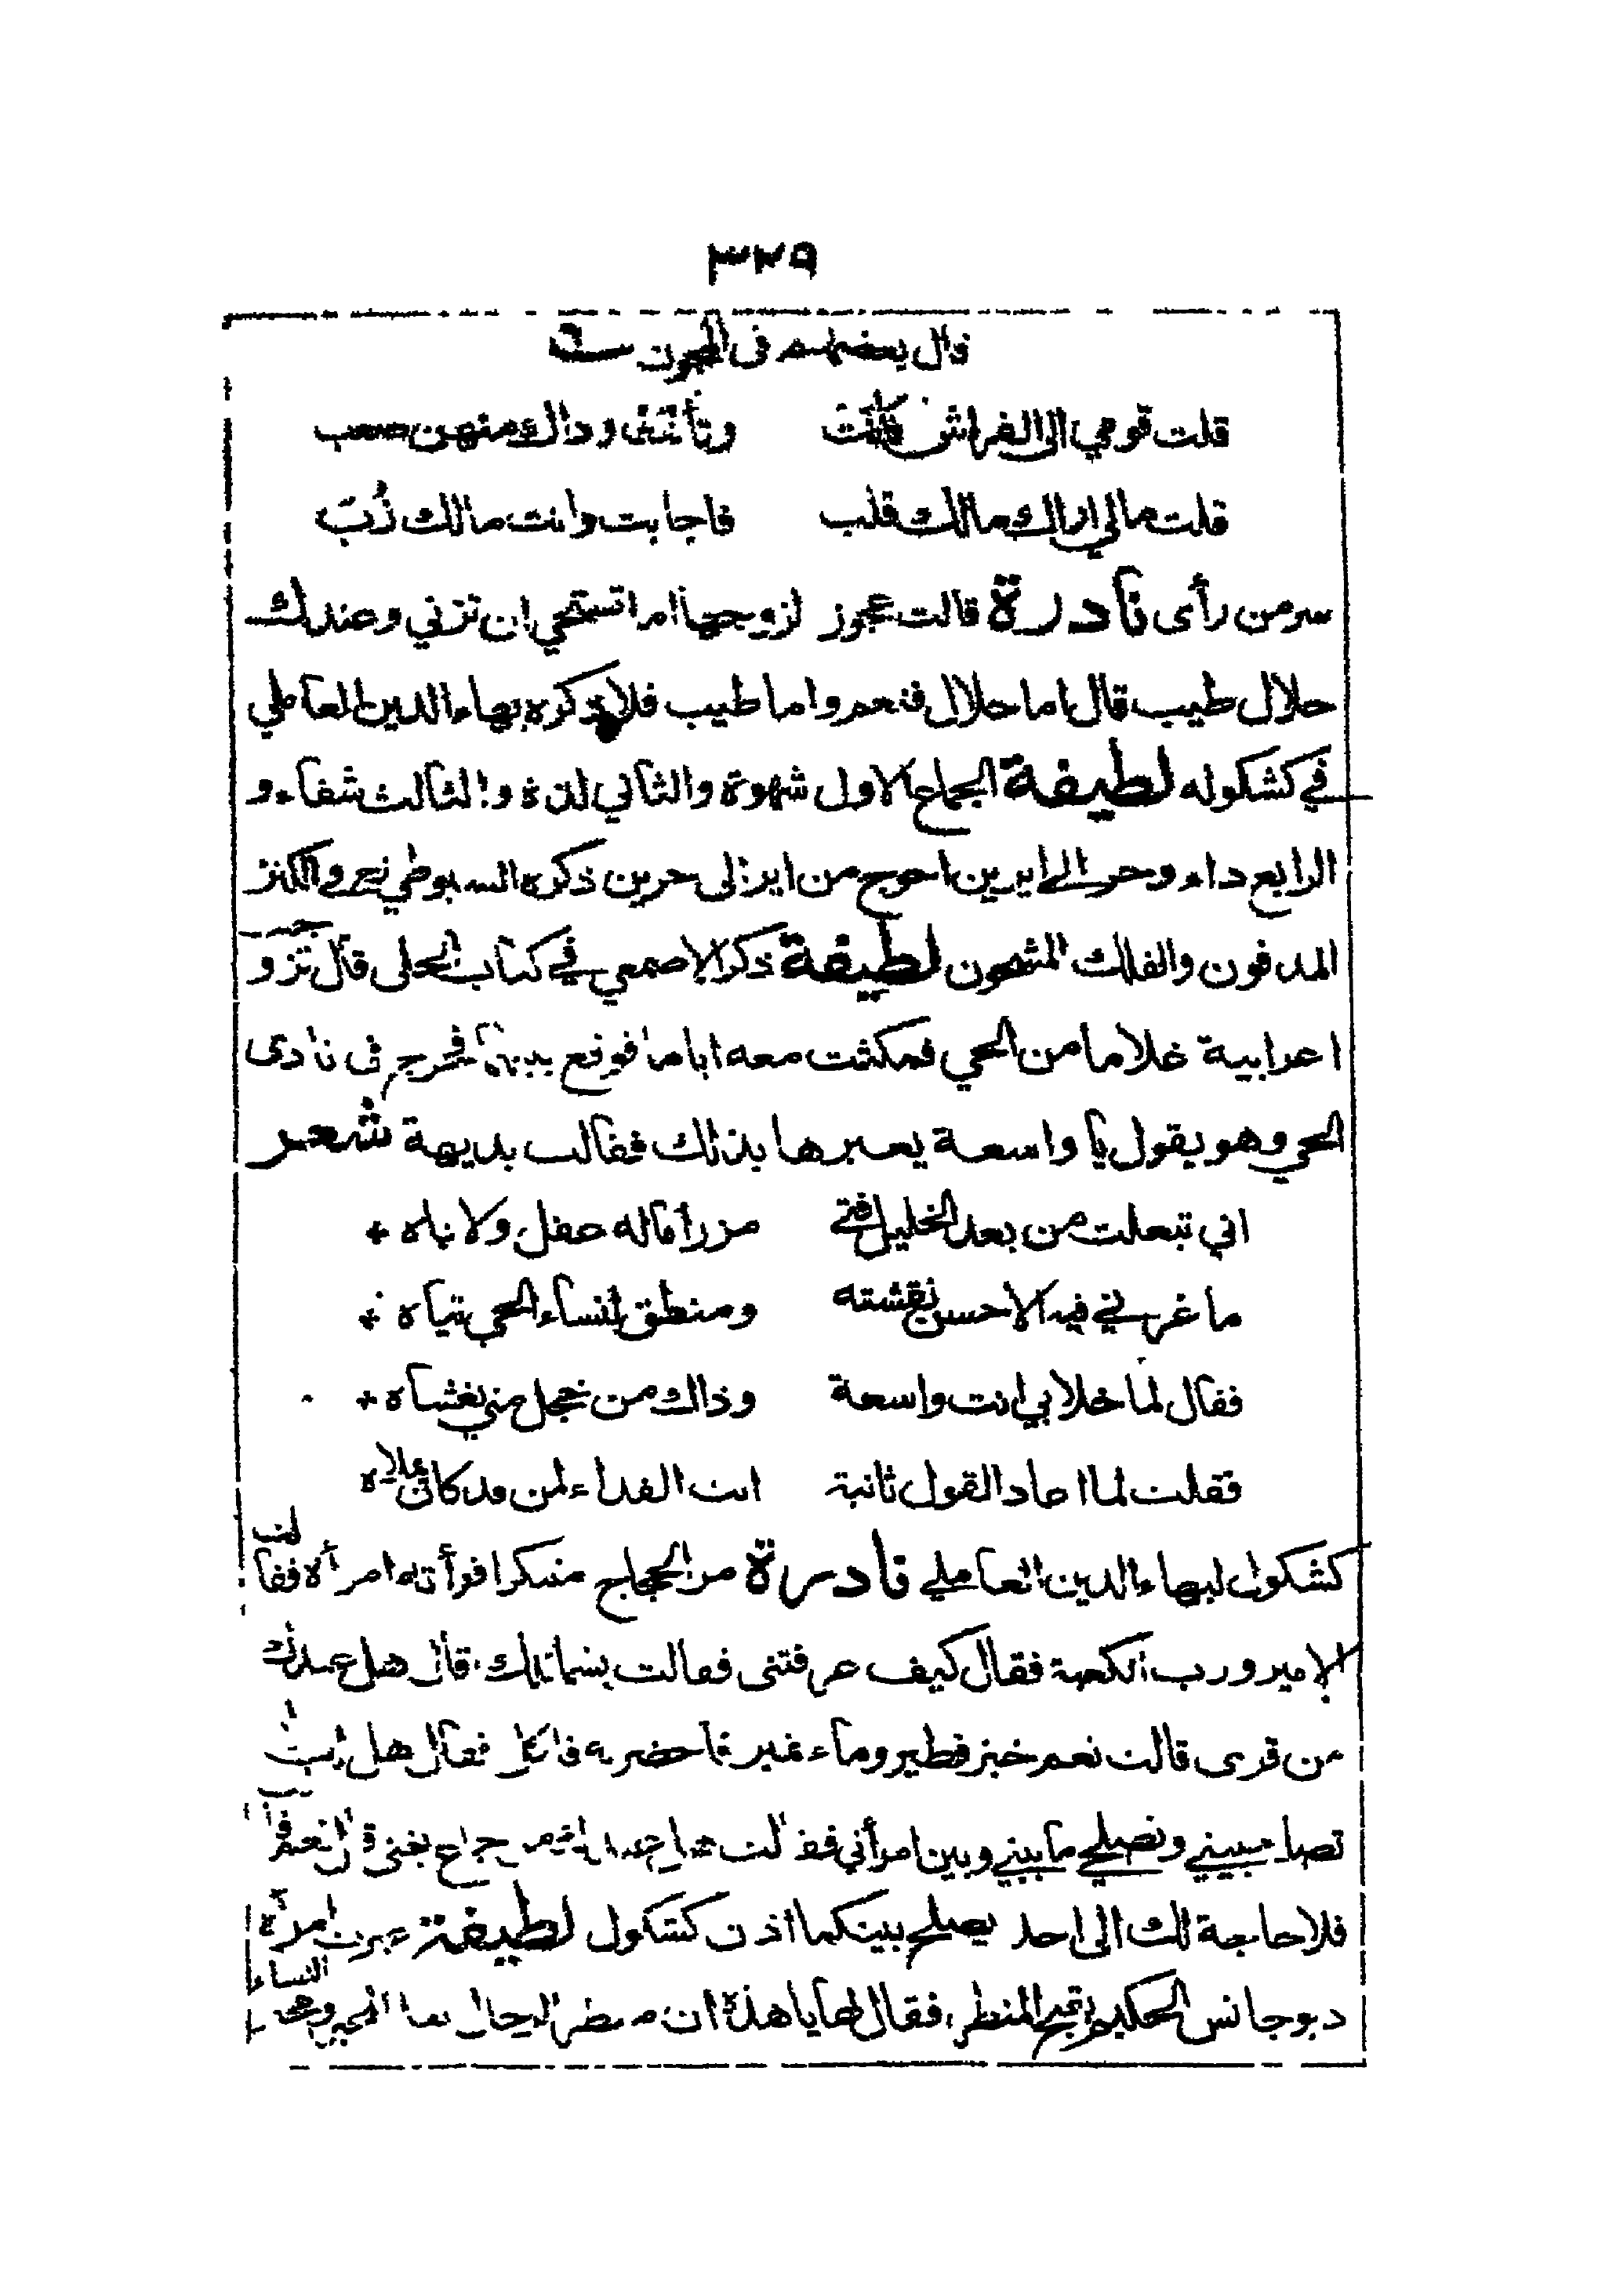 ٣٢٩
قال بعضهم في المجون
قلت قومي الى الفراش فانت وتأنثني وذاك منهن صعب
قلت مالي اراك مالك قلب فاجابت وانت مالك زُبّ
سر من رأى نادرة قالت عجوز لزوجها أما تستحي ان تزني وعندك
حلال طيب قال اما حلال فنعم واما طيب فلا ذكره بهاء الدين العاملي
في كشكوله لطيفة الجماع الاول شهوة والثاني لذة والثالث شفاء و
الرابع داء وحر الى ايرين احوج من اير الى حرين ذكره السيوطي والكنز
المدفون والفلك المشحون لطيفة ذكر الاصمعي في كتاب الحلى قال تزوجت
اعرابية غلاما من الحي فمكثت معه اياما فوقع بينهما فخرج في نادى
الحي وهو يقول يا واسعة يعيرها بذلك فقالت بديهة شعر
اني تبعلت من بعد الخليل فتى مزرأ ماله عقل ولا باه
ما غرني فيه الا حسن نقشته ومنطق لنساء الحي تياه
فقال لما خلا بي انت واسعة وذاك من خجل مني يغشاه
فقلت لما اعاد القول ثانية انت الفداء لمن قد كان يملاه
كشكول لبهاء الدين العاملي نادرة مر الحجاج متنكرا فرأته امرأة فقالت
الامير ورب الكعبة فقال كيف عرفتني فقالت بشمائلك قال هل عندك
من قرى قالت نعم خبز فطير وماء نمير فاحضرته فاكل فقال هل
تصاحبيني وتصلحي ما بيني وبين امرأتي فقالت جماع يغني قال نعم قالت
فلا حاجة لك الى احد يصلح بينكما اذن كشكول لطيفة عيرت امرأة
ديوجانس الحكيم بقبح المنظر فقال لها يا هذه ان منظر الرجال بعد المخبر النساء